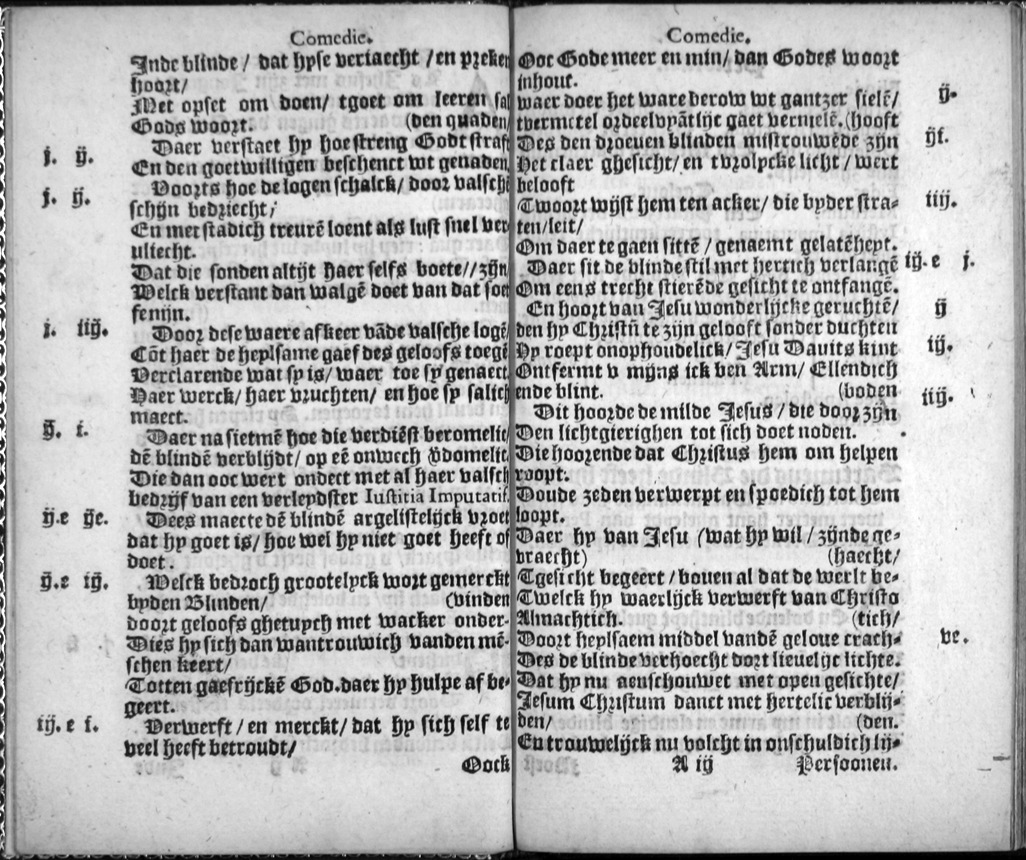 Comedie.
Inde blinde / dat hyse veriaecht / en preken
hoort /
Met opset om doen / tgoet om leeren sal
Gods woort. (den quaden /
j. ij. Daer verstaet hy hoe streng Godt straft
En den goetwilligen beschenct wt genaden
j. ij. Voorts hoe de logen schalck / door valsche
schijn bedriecht /
En met stadich treurē loent als lust snel ver-
uliecht.
Dat die sonden altijt haer selfs boete // zijn
Welck verstant dan walgē doet van dat soet
fenijn.
j. iiij. Door dese waere afkeer vāde valsche logē /
Cōt haer de heylsame gaef des geloofs toegē
Verclarende wat sy is / waer toe sy genaect
Haer werck / haer vruchten / en hoe sy salich
maect.
ij. i. Daer na sietmē hoe die verdiēst beromelic /
dē blindē verblijdt / op eē onwech v̄domelic
Die dan ooc wert ondect met al haer valsch
bedrijf van een verleydster Iustitia Imputatif.
ij.e ije. Dees maecte dē blindē argelistelijck vroet
dat hy goet is / hoe wel hy niet goet heeft of
doet.
ij.e iij. Welck bedroch grootelyck wort gemerckt
byden Blinden / (vinden
doort geloofs ghetuych met wacker onder-
Dies hy sich dan wantrouwich vanden mē-
schen keert /
Totten gaefrijckē God. daer hy hulpe af be-
geert.
iij. e i. Verwerft / en merckt / dat hy sich self te
veel heeft betroudt /
Oock
Comedie.
Ooc Gode meer en min / dan Godes woort
inhout.
waer doer het ware berow wt gantzer sielē / ij.
tvermetel ordeel vpātlijc gaet vernielē. (hooft
Des den droeuen blinden mistrouwēde zijn iij.
Het claer ghesicht / en tvrolycke licht / wert
belooft
Twoort wijst hem ten acker / die byder stra- iiij.
ten / leit /
Om daer te gaen sittē / genaemt gelatēheyt.
Daer sit de blinde stil met hertich verlangē iij. e j.
Om eens trecht stierēde gesicht te ontfangē.
En hoort van Jesu wonderlijcke geruchtē / ij
den hy Christū te zijn gelooft sonder duchten
Hy roept onophoudelick / Jesu Dauits kint iij.
Ontfermt v mijns ick ben Arm / Ellendich
ende blint. (boden
Dit hoorde de milde Jesus / die door zijn iiij.
Den lichtgierighen tot sich doet noden.
Die hoorende dat Christus hem om helpen
roopt.
Doude zeden verwerpt en spoedich tot hem
loopt.
Daer hy van Jesu (wat hy wil / zijnde ge-
vraecht) (haecht /
Tgesicht begeert / bouen al dat de werlt be-
Twelck hy waerlijck verwerft van Christo
Almachtich. (tich /
Doort heylsaem middel vandē geloue crach- ve.
Des de blinde verhoecht dort lieuelijc lichte.
Dat hy nu aenschouwet met open gesichte /
Jesum Christum danct met hertelic verblij-
den / (den.
En trouwelijck nu volcht in onschuldich lij-
A ij Persoonen.